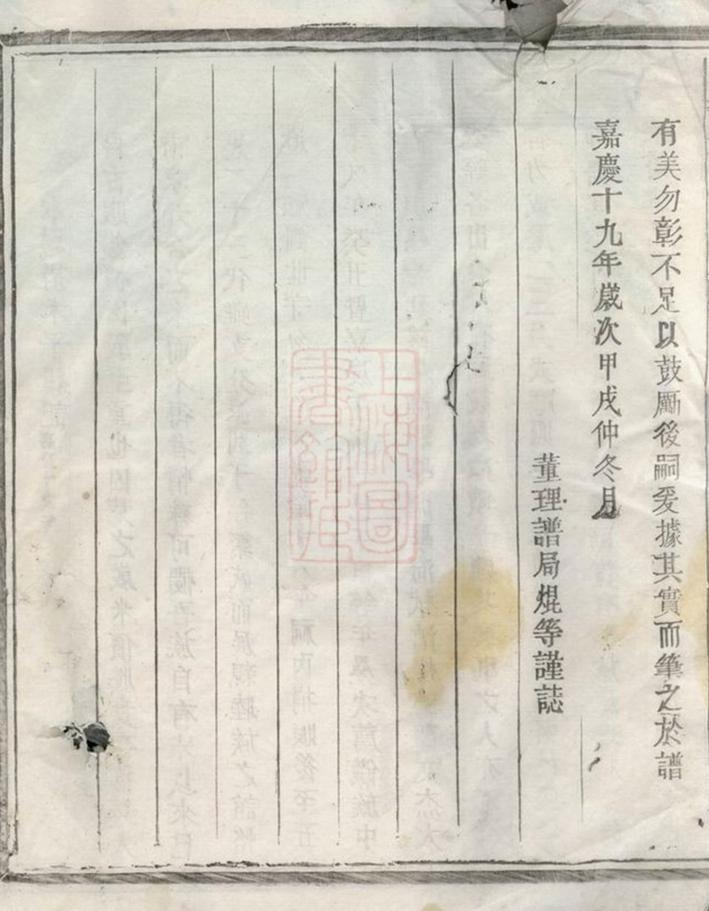 有美勿彰不足以鼓厲後嗣爰據其實而筆之於譜
嘉慶十九年歲次甲戌仲冬月
董理譜局焜等謹誌
上海圖
書館藏